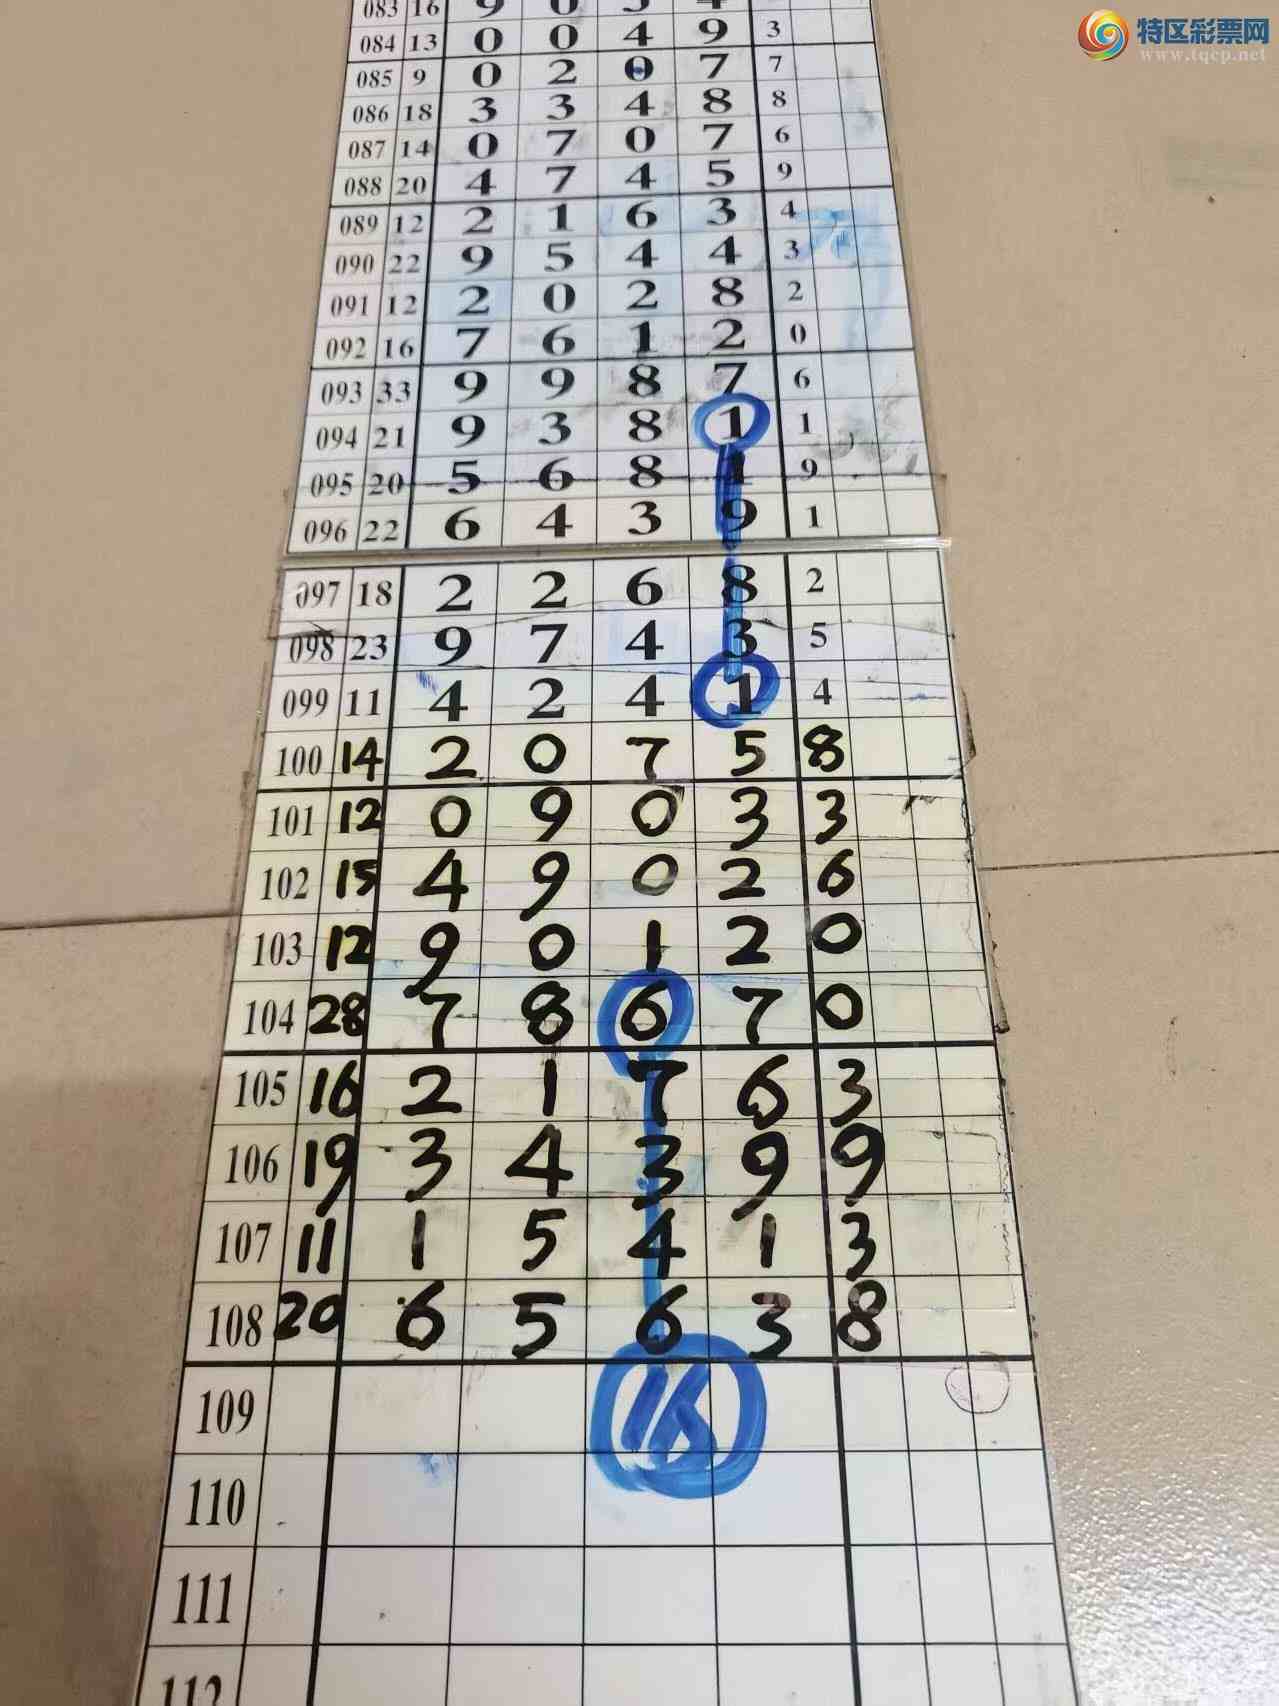 特区彩票网
www.tqcp.net
083 16 9 0 3 4
084 13 0 0 4 9 3
085 9 0 2 0 7 7
086 18 3 3 4 8 8
087 14 0 7 0 7 6
088 20 4 7 4 5 9
089 12 2 1 6 3 4
090 22 9 5 4 4 3
091 12 2 0 2 8 2
092 16 7 6 1 2 0
093 33 9 9 8 7 6
094 21 9 3 8 1 1
095 20 5 6 8 1 9
096 22 6 4 3 9 1
097 18 2 2 6 8 2
098 23 9 7 4 3 5
099 11 4 2 4 1 4
100 14 2 0 7 5 8
101 12 0 9 0 3 3
102 15 4 9 0 2 6
103 12 9 0 1 2 0
104 28 7 8 6 7 0
105 16 2 1 7 6 3
106 19 3 4 3 9 9
107 11 1 5 4 1 3
108 20 6 5 6 3 8
109 16
110
111
112